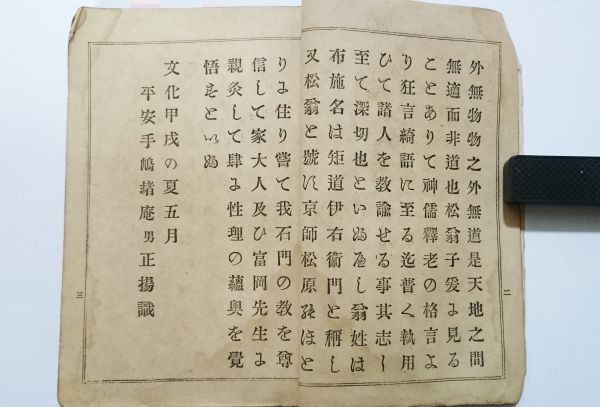 外無物物之外無道是天地之間
無適而非道也松翁子爰に見る
ことありて神儒釋老の格言よ
り狂言綺語に至る迄普く執用
ひて諸人を教諭せる事其志し
至て深切也といふべし翁姓は
布施名は矩道伊右衞門と稱し
又松翁と號に京師松原ほとと
りに住り嘗て我石門の教を尊
信して家大人及ひ富岡先生に
親炙して肆に性理の蘊奧を覺
悟すといふ
文化甲戌の夏五月
平安手嶋緖庵男正揚識
二
三